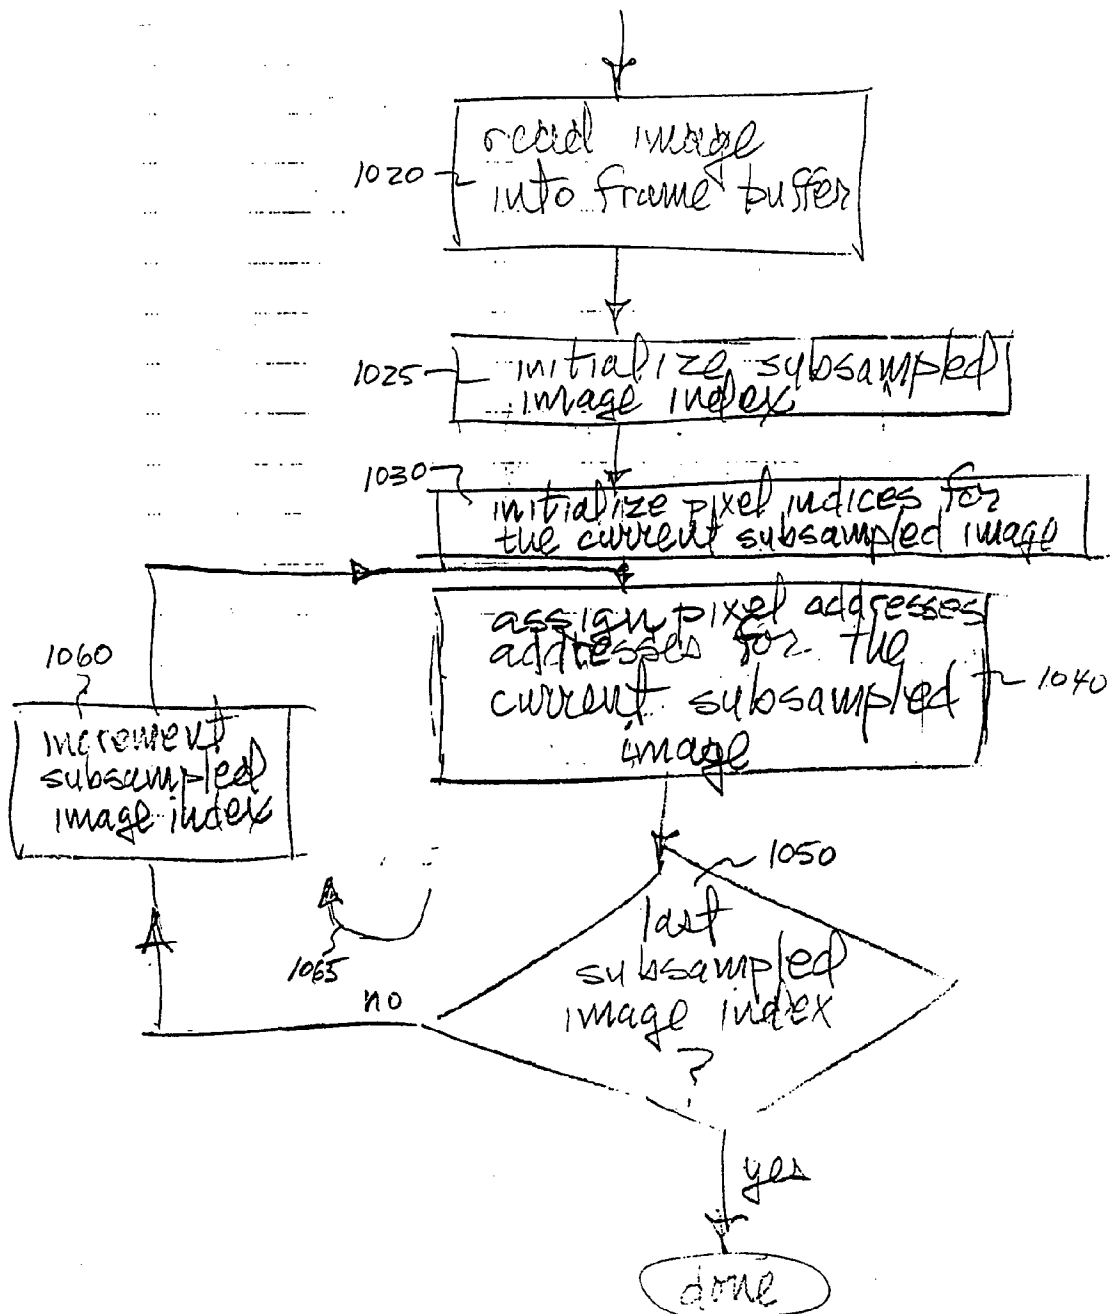 read image
1020
into frame buffer
1025
initialize subsampled
image index
1030
initialize pixel indices for
the current subsampled image
assign pixel addresses
addresses for the
current subsampled
image
1040
1060
increment
subsampled
image index
1050
last
subsampled
image index
?
1065
no
yes
done